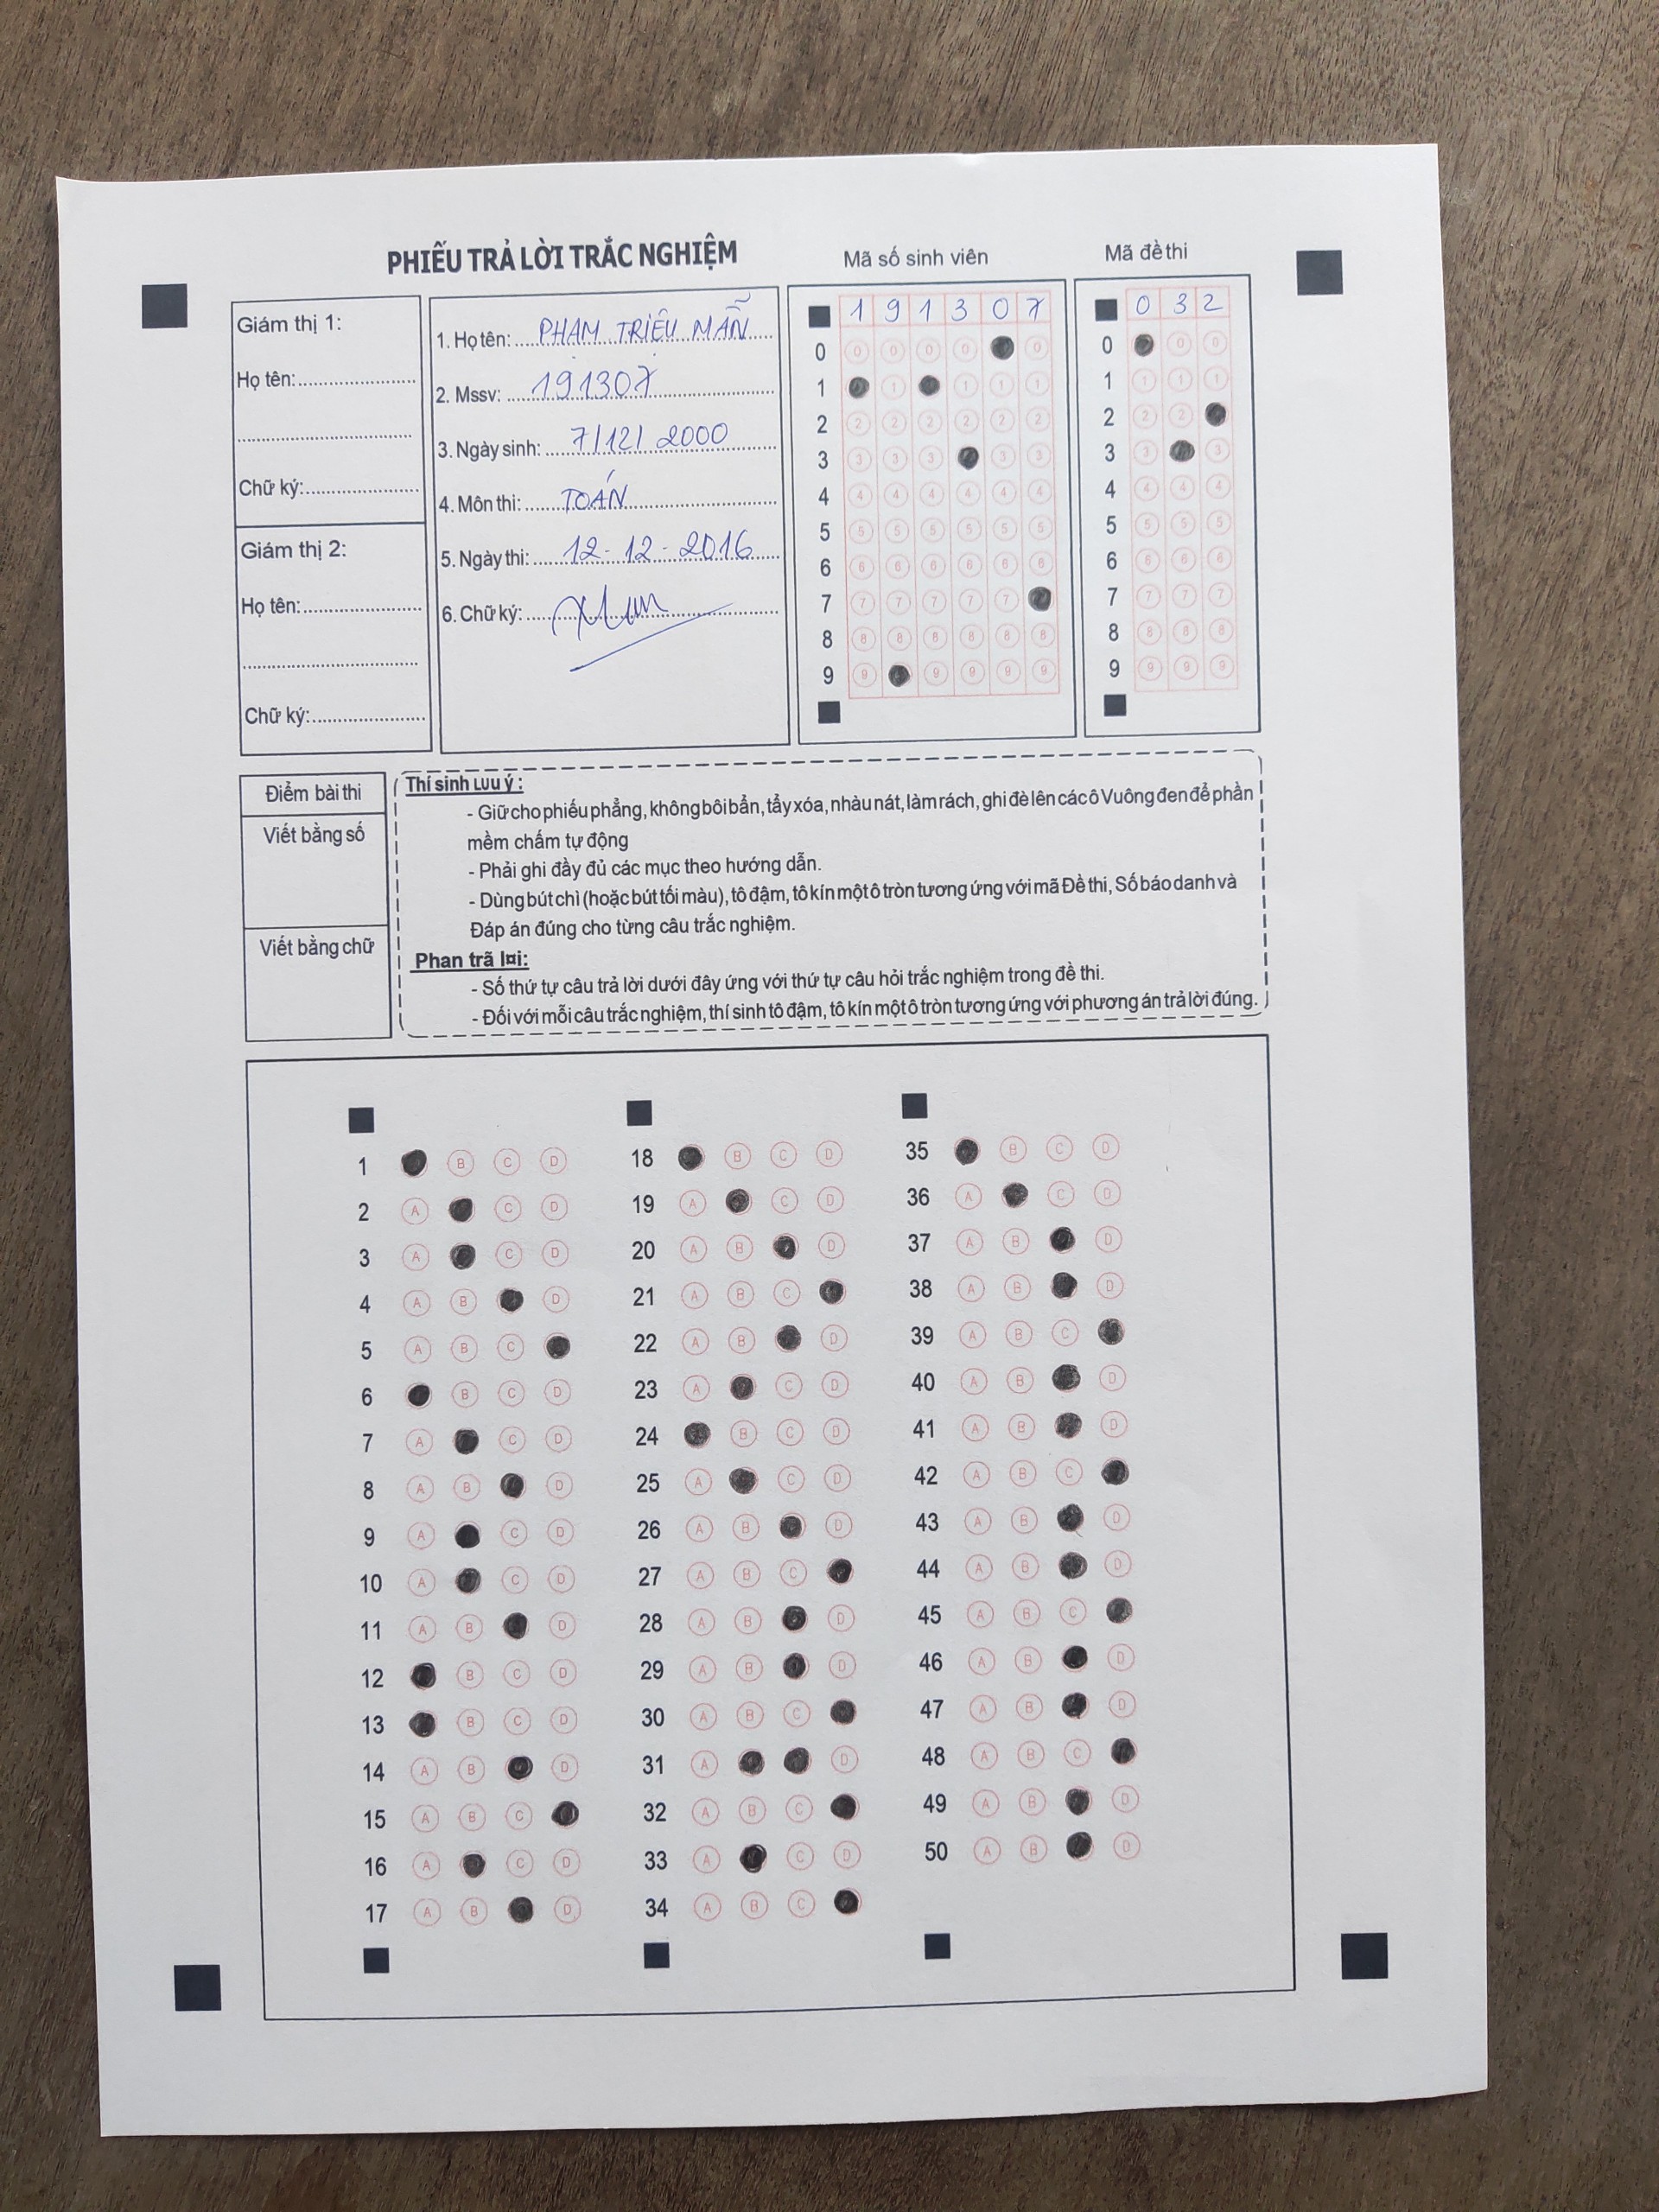 PHIẾU TRẢ LỜI TRẮC NGHIỆM
Mã số sinh viên
Mã đề thi
Giám thị 1:
Họ tên:
Chữ ký:
Giám thị 2:
Họ tên:
Chữ ký:
1. Họ tên: PHẠM TRIỆU MẪN
2. Mssv: 191307
3. Ngày sinh: 7/12/2000
4. Môn thi: TOÁN
5. Ngày thi: 12-12-2016
6. Chữ ký:
1 9 1 3 0 7
0 0 0 0 0 0
1 1 1 1
2 2 2 2 2 2 2
3 3 3 3 3 3
4 4 4 4 4 4 4
5 5 5 5 5 5 5
6 6 6 6 6 6 6
7 7 7 7 7 7
8 8 8 8 8 8 8
9 9 9 9 9 9
0 3 2
0 0 0
1 1 1 1
2 2 2
3 3 3
4 4 4 4
5 5 5 5
6 6 6 6
7 7 7 7
8 8 8 8
9 9 9 9
Điểm bài thi
Viết bằng số
Viết bằng chữ
Thí sinh LƯU ý :
- Giữ cho phiếu phẳng, không bôi bẩn, tẩy xóa, nhàu nát, làm rách, ghi đè lên các ô Vuông đen để phần
mềm chấm tự động
- Phải ghi đầy đủ các mục theo hướng dẫn.
- Dùng bút chì (hoặc bút tối màu), tô đậm, tô kín một ô tròn tương ứng với mã Đề thi, Số báo danh và
Đáp án đúng cho từng câu trắc nghiệm.
Phan trã l¤i:
- Số thứ tự câu trả lời dưới đây ứng với thứ tự câu hỏi trắc nghiệm trong đề thi.
- Đối với mỗi câu trắc nghiệm, thí sinh tô đậm, tô kín một ô tròn tương ứng với phương án trả lời đúng.
1 B C D
2 A C D
3 A C D
4 A B D
5 A B C
6 B C D
7 A C D
8 A B D
9 A C D
10 A C D
11 A B D
12 B C D
13 B C D
14 A B D
15 A B C
16 A C D
17 A B D
18 B C D
19 A C D
20 A B D
21 A B C
22 A B D
23 A C D
24 B C D
25 A C D
26 A B D
27 A B C
28 A B D
29 A B D
30 A B C
31 A D
32 A B C
33 A C D
34 A B C
35 B C D
36 A C D
37 A B D
38 A B D
39 A B C
40 A B D
41 A B D
42 A B C
43 A B D
44 A B D
45 A B C
46 A B D
47 A B D
48 A B C
49 A B D
50 A B D